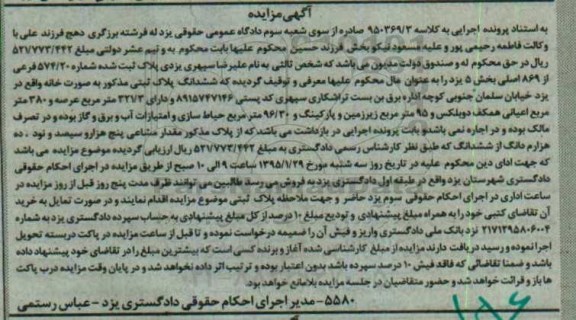 آگهی مزایده
به استناد پرونده اجرایی به کلاسه ۹۵۰۳۶۹/۳ صادره از سوی شعبه سوم دادگاه عمومی حقوقی یزد له فرشته برزگری دهج فرزند علی با
وکالت فاطمه رحیمی پور و علیه مسعود نیکو بخش فرزند حسین محکوم علیها بابت محکوم به و نیم عشر دولتی مبلغ ۵۲۱/۷۷۳/۴۴۲
ریال در حق محکوم له و صندوق دولت مدیون می باشد که شخص ثالثی به نام علیرضا سپهری یزدی پلاک ثبت شده شماره ۵۷۴/۲۰ فرعی
از ۸۶۹ اصلی بخش ۵ یزد را به عنوان مال محکوم علیها معرفی و توقیف گردیده که ششدانگ پلاک ثبتی مذکور به صورت خانه واقع در
یزد خیابان سلمان جنوبی کوچه اداره برق بن بست تراشکاری سپهری کد پستی ۸۹۱۵۷۴۷۱۴۶ و دارای ۳۲۱/۳ متر مربع عرصه و ۳۸۰ متر
مربع اعیانی همکف دوبلکس و ۹۵ متر مربع زیرزمین و پارکینگ و ۹۶/۳۰ متر مربع حیاط سازی و امتیازات آب و برق و گاز بوده و در تصرف
مالک بوده و در اجاره نمی باشد و بابت پرونده اجرایی در بازداشت می باشد که از پلاک مذکور مقدار مشاعی پنج هزار و سیصد و نود ، ده
هزارم دانگ از ششدانگ که طبق نظر کارشناس رسمی دادگستری به مبلغ ۵۲۱/۷۷۳/۴۴۲ ریال ارزیابی گردیده موضوع مزایده می باشد
که جهت ادای دین محکوم علیه در تاریخ روز سه شنبه مورخ ۱۳۹۵/۱/۲۹ ساعت ۹ الی ۱۰ صبح از طریق مزایده در اجرای احکام حقوقی
دادگستری شهرستان یزد واقع در طبقه اول دادگستری یزد به فروش می رسد طالبین می توانند ظرف مدت پنج روز قبل از روز مزایده در
ساعت اداری در اجرای احکام حقوقی سوم یزد حاضر و جهت ملاحظه پلاک ثبتی موضوع مزایده اقدام نمایند و در صورت تمایل به خرید
آن تقاضای کتبی خود را به همراه مبلغ پیشنهادی و تودیع مبلغ ۱۰ درصد از کل مبلغ پیشنهادی به حساب سپرده دادگستری یزد به شماره
۲۱۷۱۲۹۵۸۰۶۰۰۴ نزد بانک ملی دادگستری واریز و فیش آن را ضمیمه درخواست نموده و تا قبل از ساعت مزایده در پاکت دربسته تحویل
اجرا نموده و رسید دریافت دارند مزایده از مبلغ کارشناسی شده آغاز و برنده کسی است که بیشترین مبلغ را در تقاضای خود پیشنهاد داده
باشد و ضمنا تقاضائی که فاقد فیش ۱۰ درصد سپرده باشد بدون اعتبار بوده و ترتیب اثر داده نخواهد شد و در پایان وقت مزایده درب پاکت
ها باز و قرائت خواهد شد و حضور متقاضیان در جلسه مزایده بلامانع خواهد بود.
۵۵۸۰- مدیر اجرای احکام حقوقی دادگستری یزد - عباس رستمی